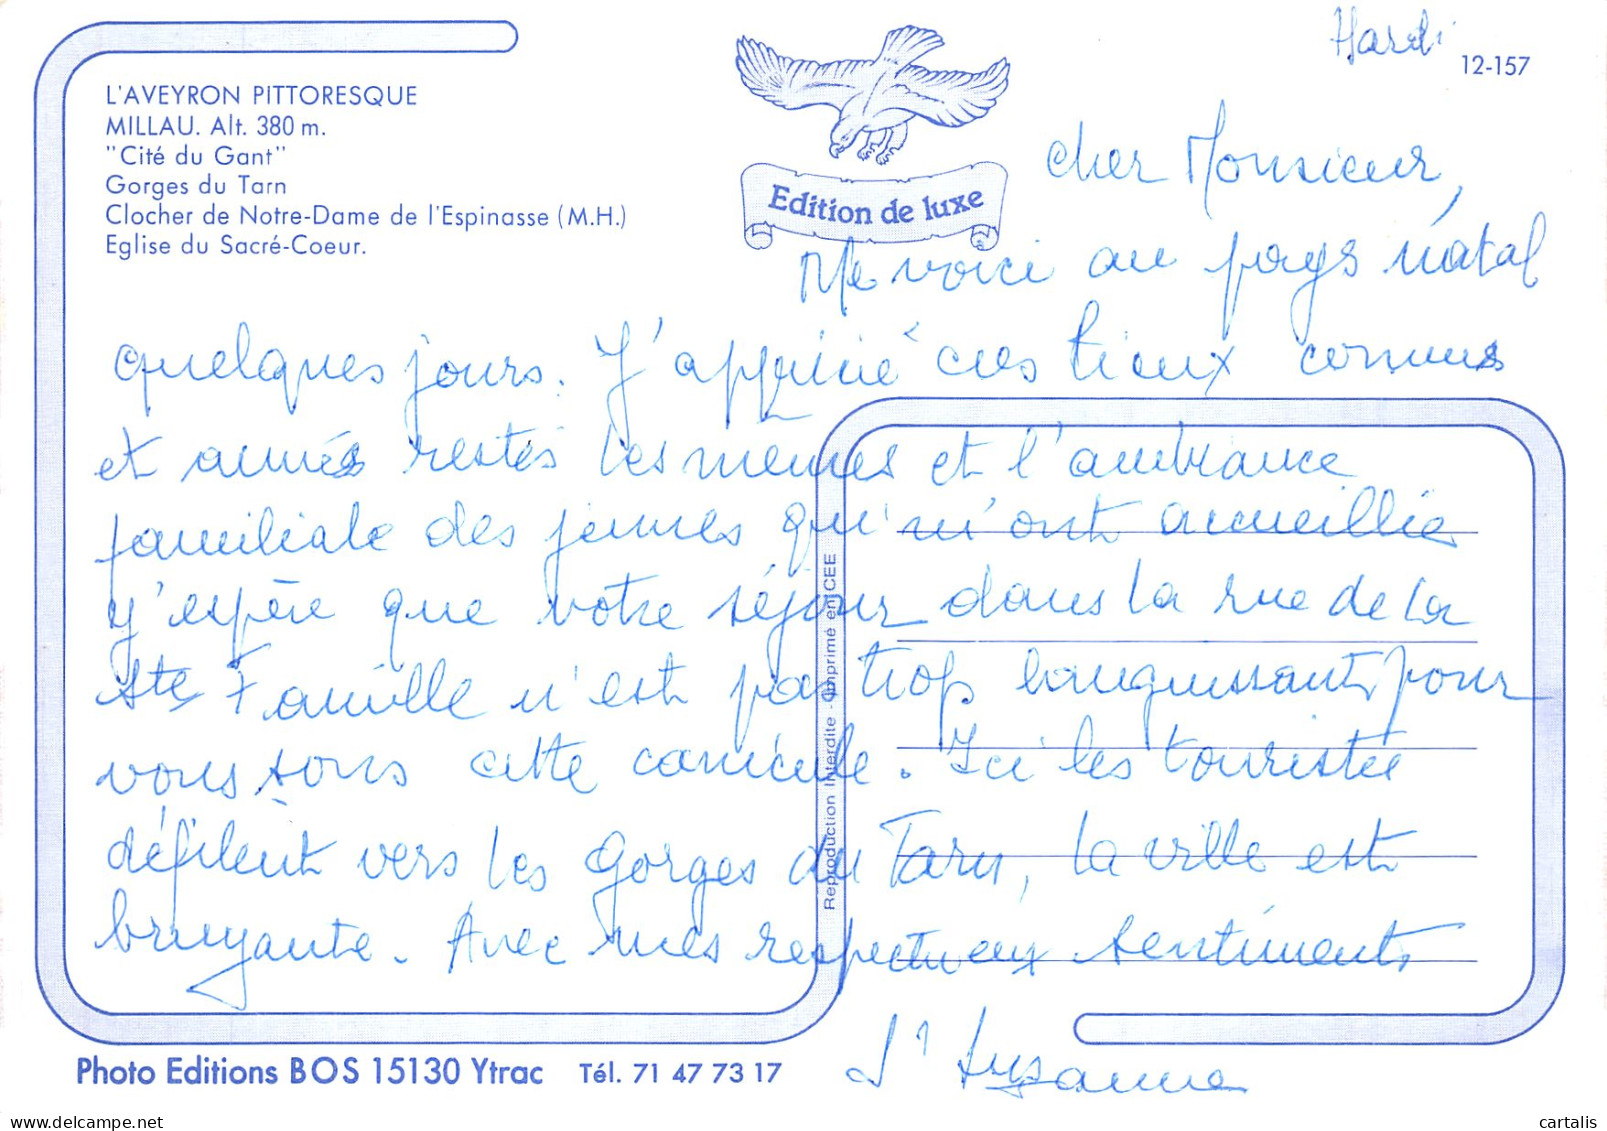 Hardi
12-157
L'AVEYRON PITTORESQUE
MILLAU. Alt. 380 m.
"Cité du Gant"
Gorges du Tarn
Clocher de Notre-Dame de l'Espinasse (M.H.)
Eglise du Sacré-Coeur.
Edition de luxe
Cher Monsieur,
Me voici au pays natal
quelques jours. J'apprécie ces lieux connus
et aimés restés les mêmes et l'ambiance
familiale des jeunes qui m'ont accueillie
j'espère que votre séjour dans la rue de la
Ste Famille n'est pas trop languissant pour
vous sous cette canicule. Ici les touristes
défilent vers les Gorges du Tarn, la ville est
bruyante. Avec mes respectueux sentiments
Sr Suzanne
Reproduction Interdite - Imprimé en CEE
Photo Editions BOS 15130 Ytrac Tél. 71 47 73 17
cartalis